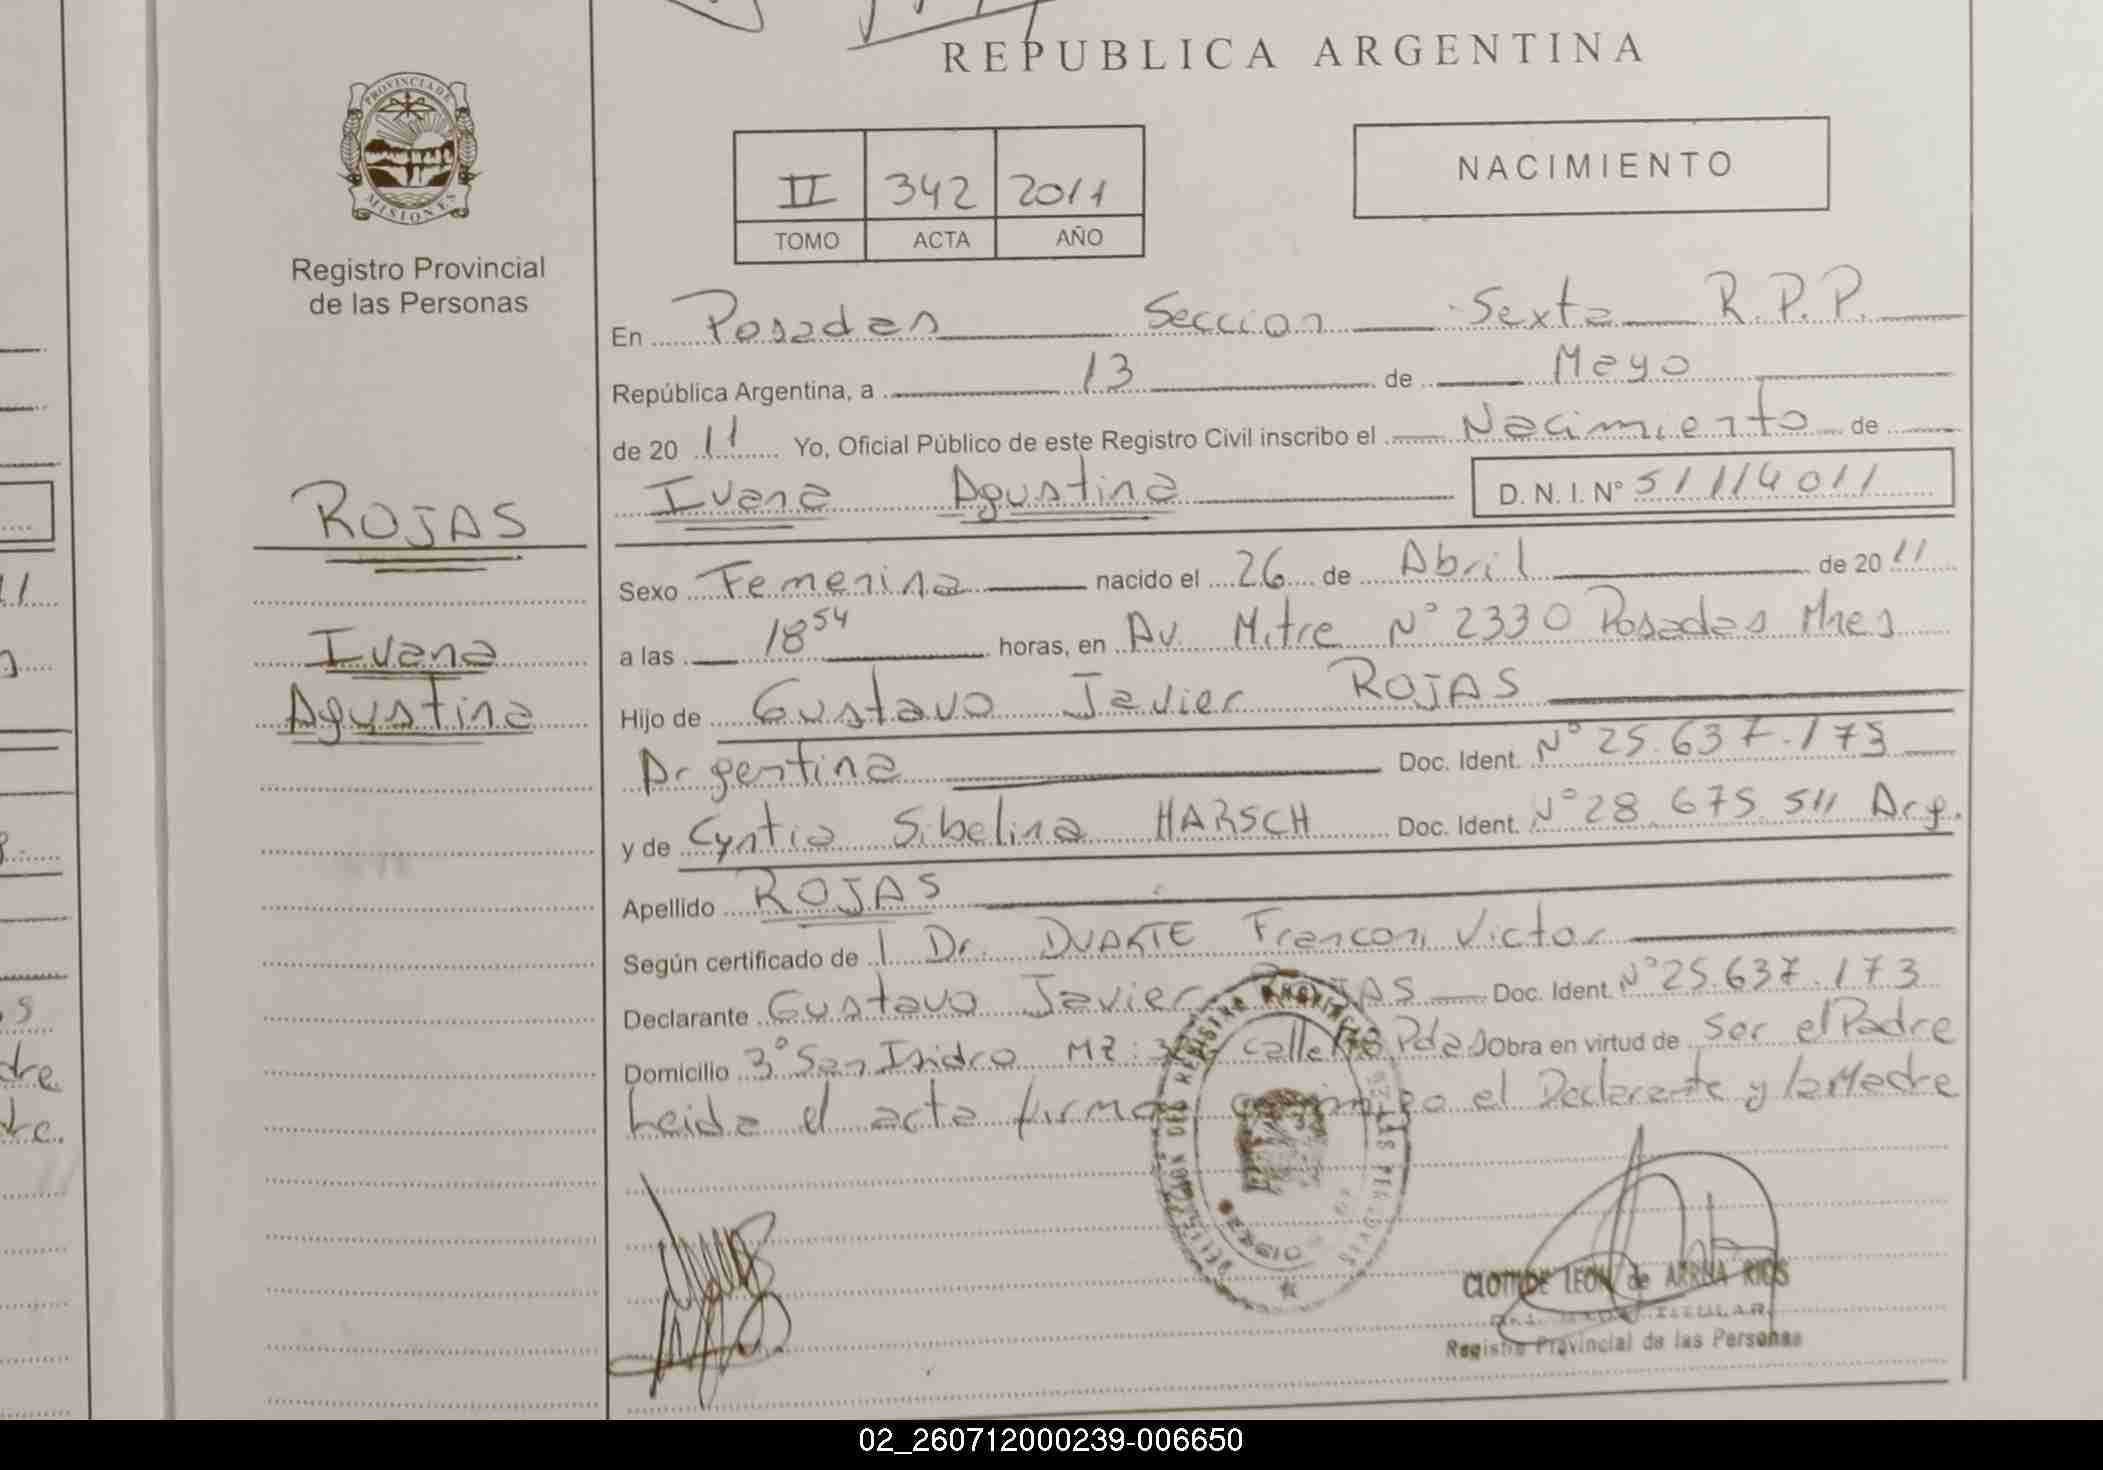 REPUBLICA ARGENTINA
PROVINCIA DE
MISIONES
Registro Provincial
de las Personas
II 342 2011
TOMO ACTA AÑO
NACIMIENTO
En Posadas Seccion Sexta R.P.P.
República Argentina, a 13 de Mayo
de 2011 Yo, Oficial Público de este Registro Civil inscribo el Nacimiento de
Ivana Agustina D. N. I. Nº 51114011
ROJAS
Ivana
Agustina
Sexo Femenina nacido el 26 de Abril de 2011
a las 18 54 horas, en Av. Mitre Nº 2330 Posadas Mnes
Hijo de Gustavo Javier ROJAS
Argentina Doc. Ident. Nº 25.637.173
y de Cyntia Sibelina HARSCH Doc. Ident. Nº 28.675.511 Arg.
Apellido ROJAS
Según certificado de l Dr. DUARTE Franconi Victor
Declarante Gustavo Javier ROJAS Doc. Ident. Nº 25.637.173
Domicilio 3º San Isidro MZ: calle Pdas Obra en virtud de Ser el Padre
Leida el acta firma conmigo el Declarante y la Madre
CLOTILDE LEON de ARRUA RIOS
TITULAR
Registro Provincial de las Personas
02_260712000239-006650